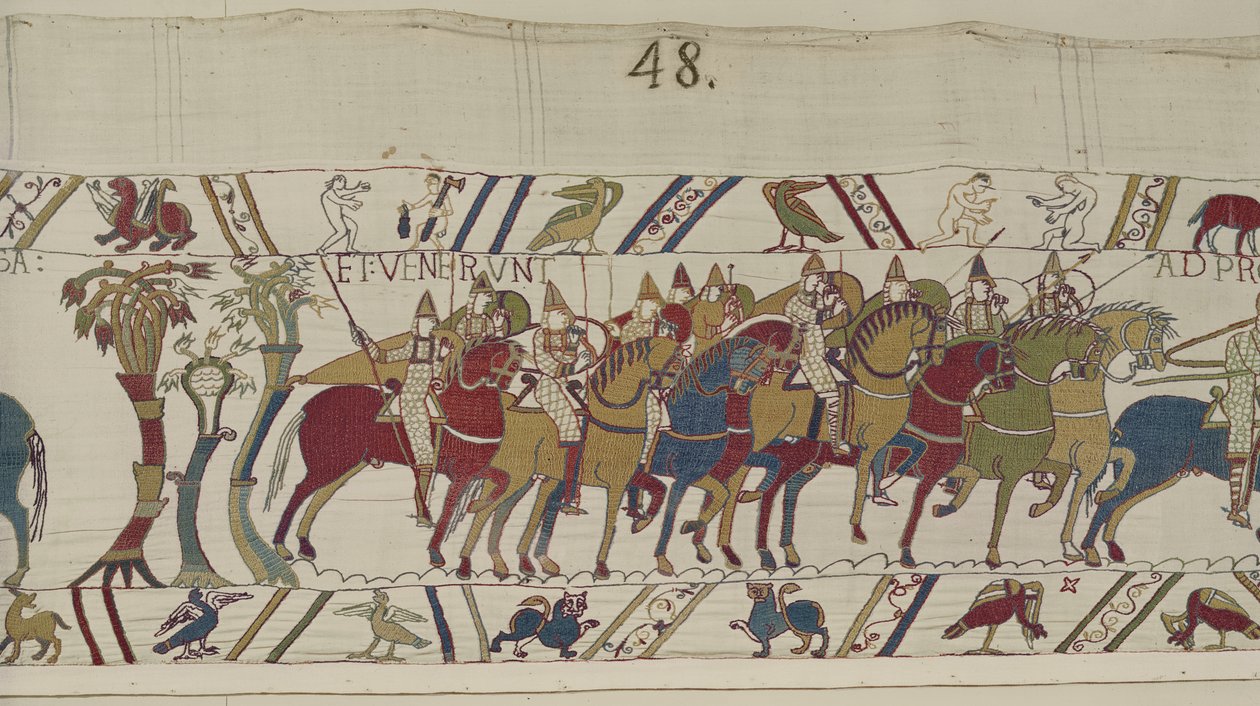 48.
GA: ET: VENERVNT AD PR